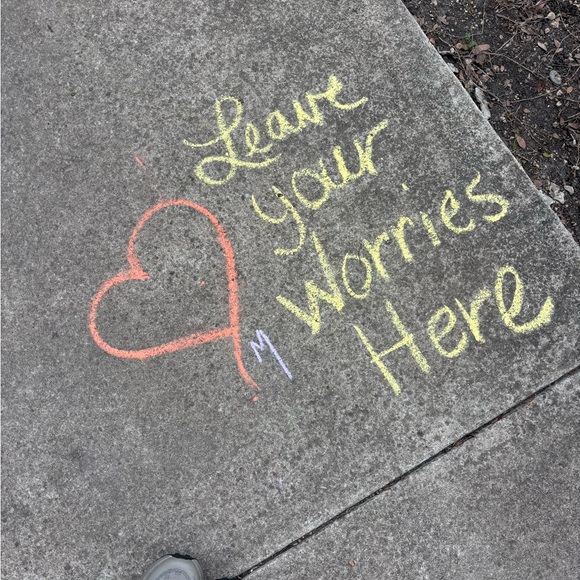 Leave
your
Worries
Here
M